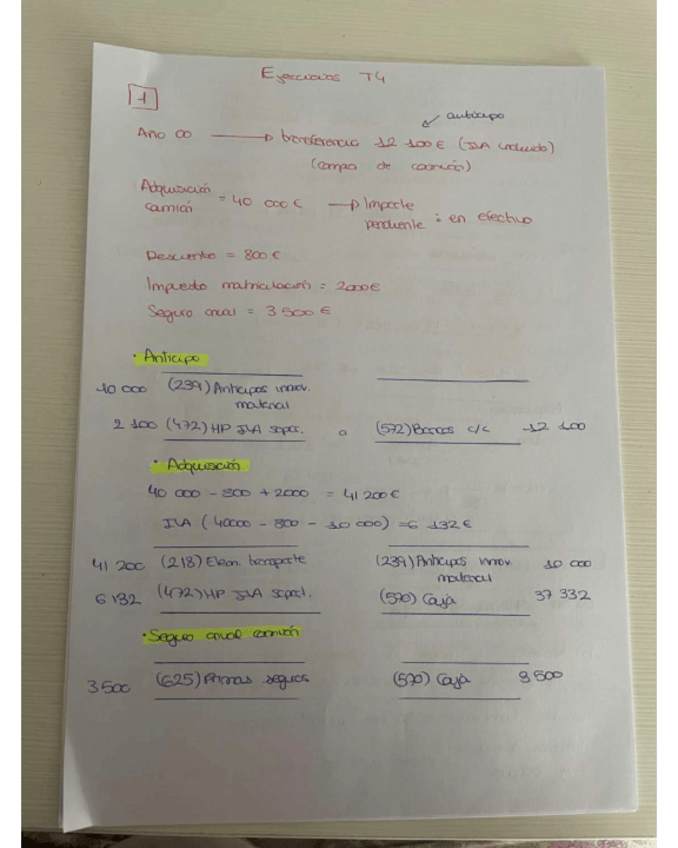 Ejercicios T4
1
anticipo
Año 00 → transferencia 12 100 € (IVA incluido)
(compra de camión)
Adquisición camión = 40 000 € → Importe pendiente : en efectivo
Descuento = 800 €
Impuesto matriculación = 2000 €
Seguro anual = 3 500 €
· Anticipo
10 000 (239) Anticipos inmov. material
2 100 (472) HP IVA sopor. a (572) Bancos c/c 12 100
· Adquisición
40 000 - 800 + 2000 = 41 200 €
IVA (40000 - 800 - 10 000) = 6 132 €
41 200 (218) Elem. transporte (239) Anticipos inmov. material 10 000
6 132 (472) HP IVA soport. (570) Caja 37 332
· Seguro anual camión
3 500 (625) Primas seguros (570) Caja 3 500